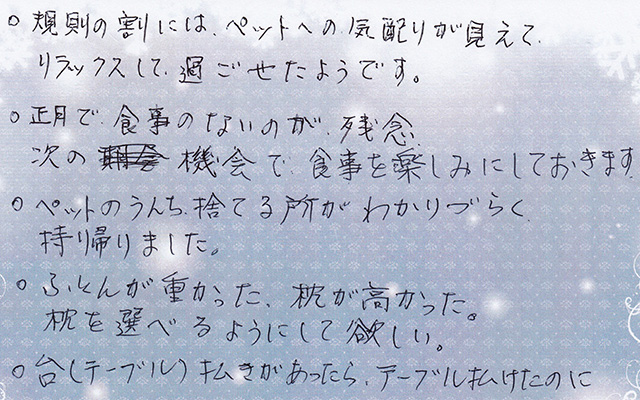 ○ 規則の割には、ペットへの気配りが見えて、
リラックスして過ごせたようです。
○ 正月で、食事のないのが、残念
次の 機会で、食事を楽しみにしておきます
○ ペットのうんち、捨てる所がわかりづらく、
持り帰りました。
○ ふとんが重かった、枕が高かった。
枕を選べるようにして欲しい。
○ 台(テーブル)払きがあったら、テーブル払けたのに